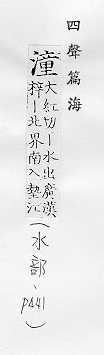 四聲篇海
潼
大紅切丨水出廣漢
梓丨北界南入墊江
(水部、P441)